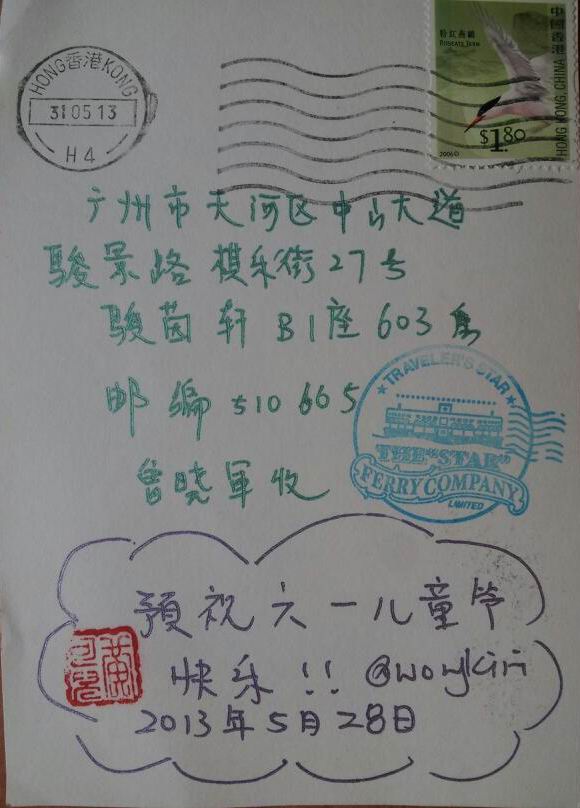 HONG 香港 KONG
31 05 13
H 4
粉紅燕鷗
ROSEATE TERN
中国香港
HONG KONG, CHINA
$1.80
2006
广州市天河区中山大道
骏景路棋乐街27号
骏茵轩B1座603房
邮编510665
曾晓军收
TRAVELER'S STAR
THE "STAR"
FERRY COMPANY
LIMITED
預祝六一儿童节
快乐!! @wongkiri
2013年5月28日